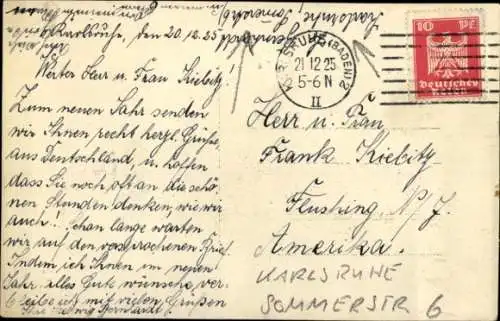 Karlsruhe, den 20.12.25
Werter Herr u. Frau Kiebitz!
Zum neuen Jahr senden
wir Ihnen recht herzl. Grüße,
aus Deutschland, u. hoffen
dass Sie noch oft an die schö-
nen Stunden denken, wie wir
auch! Schon lange warten
wir auf den versprochenen Brief.
Indem ich Ihnen im neuen
Jahr alles Gute wünsche, ver-
bleibe ich mit vielen Grüßen
KARLSRUHE (BADEN) 2
21.12.25
5-6 N
II
10 PF
Deutsches
Herr u. Frau
Frank Kiebitz
Flushing, N/J.
Amerika.
KARLSRUHE
SOMMERSTR 6